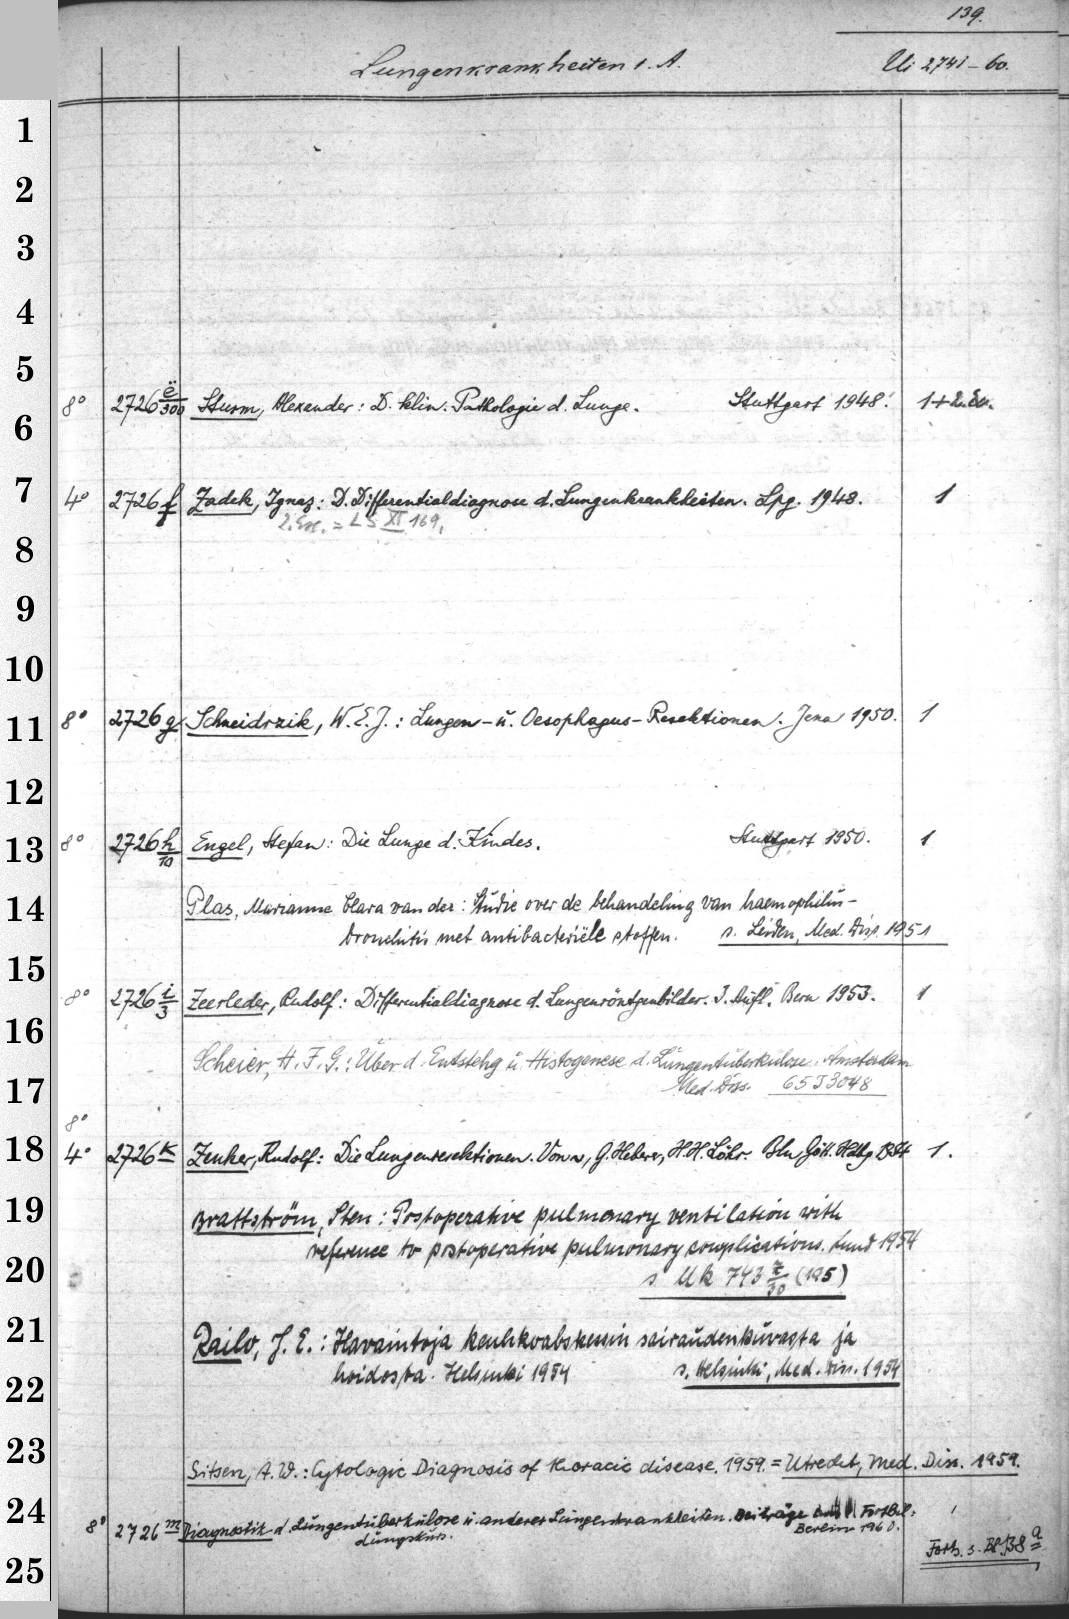 139.
Lungenkrankheiten i. A. Ui 2741-60.
1
2
3
4
5
8° 2726 ë/300 Sturm, Alexander: D. klin. Pathologie d. Lunge. Stuttgart 1948. 1+2. Ex.
6
7
4° 2726 f Zadek, Ignaz: D. Differentialdiagnose d. Lungenkrankheiten. Lpg. 1948. 1
2. Ex. = LS XI 169.
8
9
10
11
8° 2726 g Schneidrzik, W. E. J.: Lungen- u. Oesophagus-Resektionen. Jena 1950. 1
12
13
8° 2726 h/10 Engel, Stefan: Die Lunge d. Kindes. Stuttgart 1950. 1
14
Plas, Marianne Clara van der: Studie over de behandeling van haemophilus-
bronchitis met antibacteriële stoffen. s. Leiden, Med. Diss. 1951
15
8° 2726 i/3 Zeerleder, Rudolf: Differentialdiagnose d. Lungenröntgenbilder. 3. Aufl. Bern 1953. 1
16
Scheier, H. F. G.: Über d. Entstehg u. Histogenese d. Lungentuberkulose. Amsterdam
17
Med. Diss. 65 J 3048
8°
18
4° 2726 k Zenker, Rudolf: Die Lungenresektionen. Von ~, G. Heberer, H. H. Löhr. Bln, Gött. Hdbg 1954 1.
19
Brattström, Sten: Postoperative pulmonary ventilation with
reference to postoperative pulmonary complications. Lund 1954
20
s Uk 743 /30 (195)
21
Railo, J. E.: Havaintoja keuhkoabskessin sairaudenkuvasta ja
22
hoidosta. Helsinki 1954 s. Helsinki, Med. Diss. 1954
23
Sitsen, A. W.: Cytologic Diagnosis of thoracic disease. 1959. = Utrecht, Med. Diss. 1959.
24
8° 2726 m Diagnostik d. Lungentuberkulose u. anderer Lungenkrankheiten. Beiträge Fortbil-
dungskurs. Berlin 1960. 1
25
Forts. s. Bl. 138 a